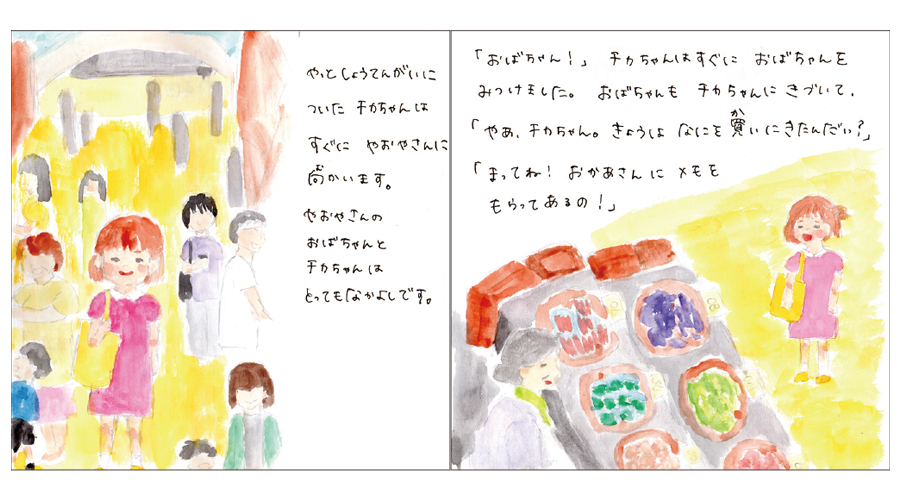 やっとしょうてんがいに
ついた チカちゃんは
すぐに やおやさんに
向かいます。
やおやさんの
おばちゃんと
チカちゃんは
とってもなかよしです。
「おばちゃん!」 チカちゃんはすぐに おばちゃんを
みつけました。 おばちゃんも チカちゃんに きづいて、
「やあ、チカちゃん。きょうは なにを 買いにきたんだい?」
「まってね! おかあさんに メモを
もらってあるの!」